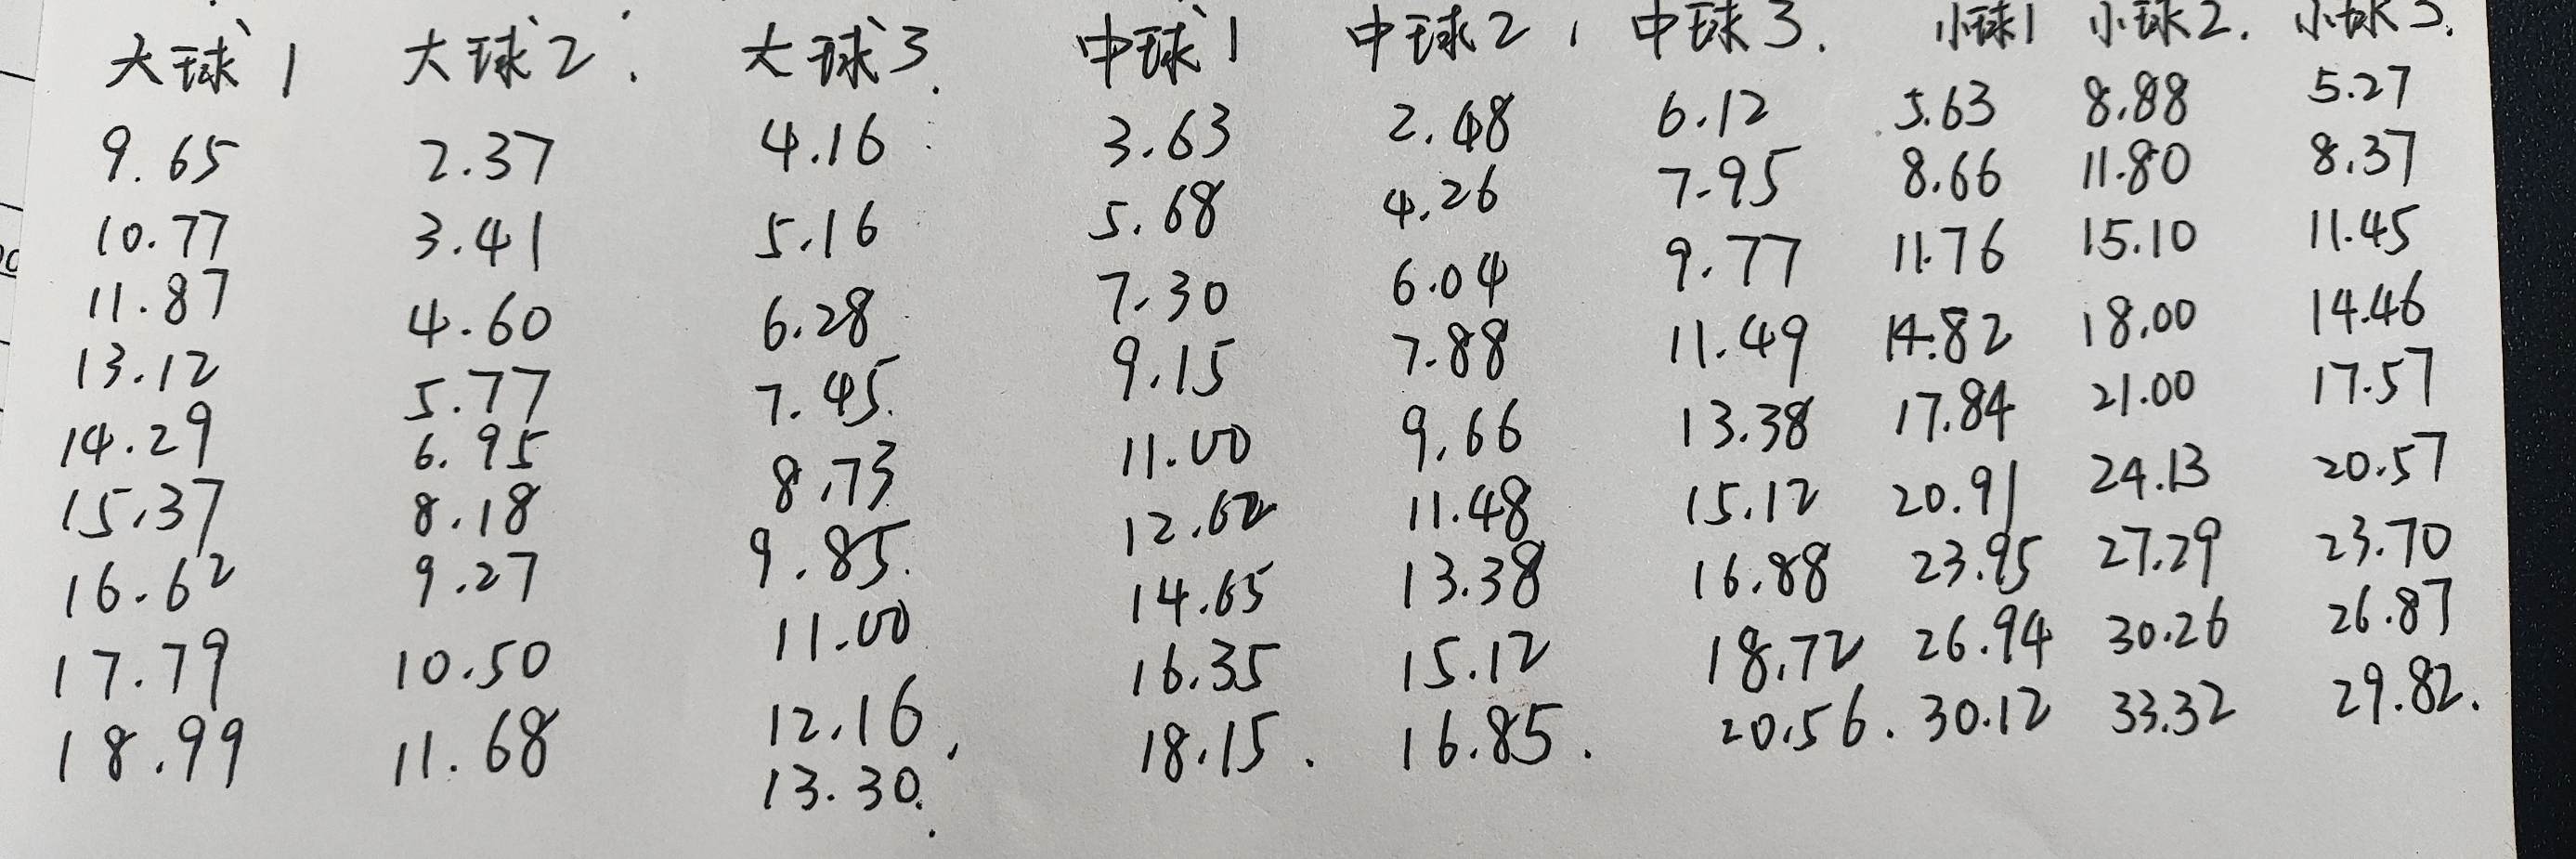 大球1 大球2. 大球3. 中球1 中球2, 中球3. 小球1 小球2. 小球3.
9.65 2.37 4.16 3.63 2.48 6.12 5.63 8.88 5.27
10.77 3.41 5.16 5.68 4.26 7.95 8.66 11.80 8.37
11.87 4.60 6.28 7.30 6.04 9.77 11.76 15.10 11.45
13.12 5.77 7.45. 9.15 7.88 11.49 14.82 18.00 14.46
14.29 6.95 8.73 11.00 9.66 13.38 17.84 21.00 17.57
15.37 8.18 9.85. 12.62 11.48 15.12 20.91 24.13 20.57
16.62 9.27 11.00 14.65 13.38 16.88 23.95 27.29 23.70
17.79 10.50 12.16, 16.35 15.12 18.72 26.94 30.26 26.87
18.99 11.68 13.30. 18.15. 16.85. 20.56. 30.12 33.32 29.82.